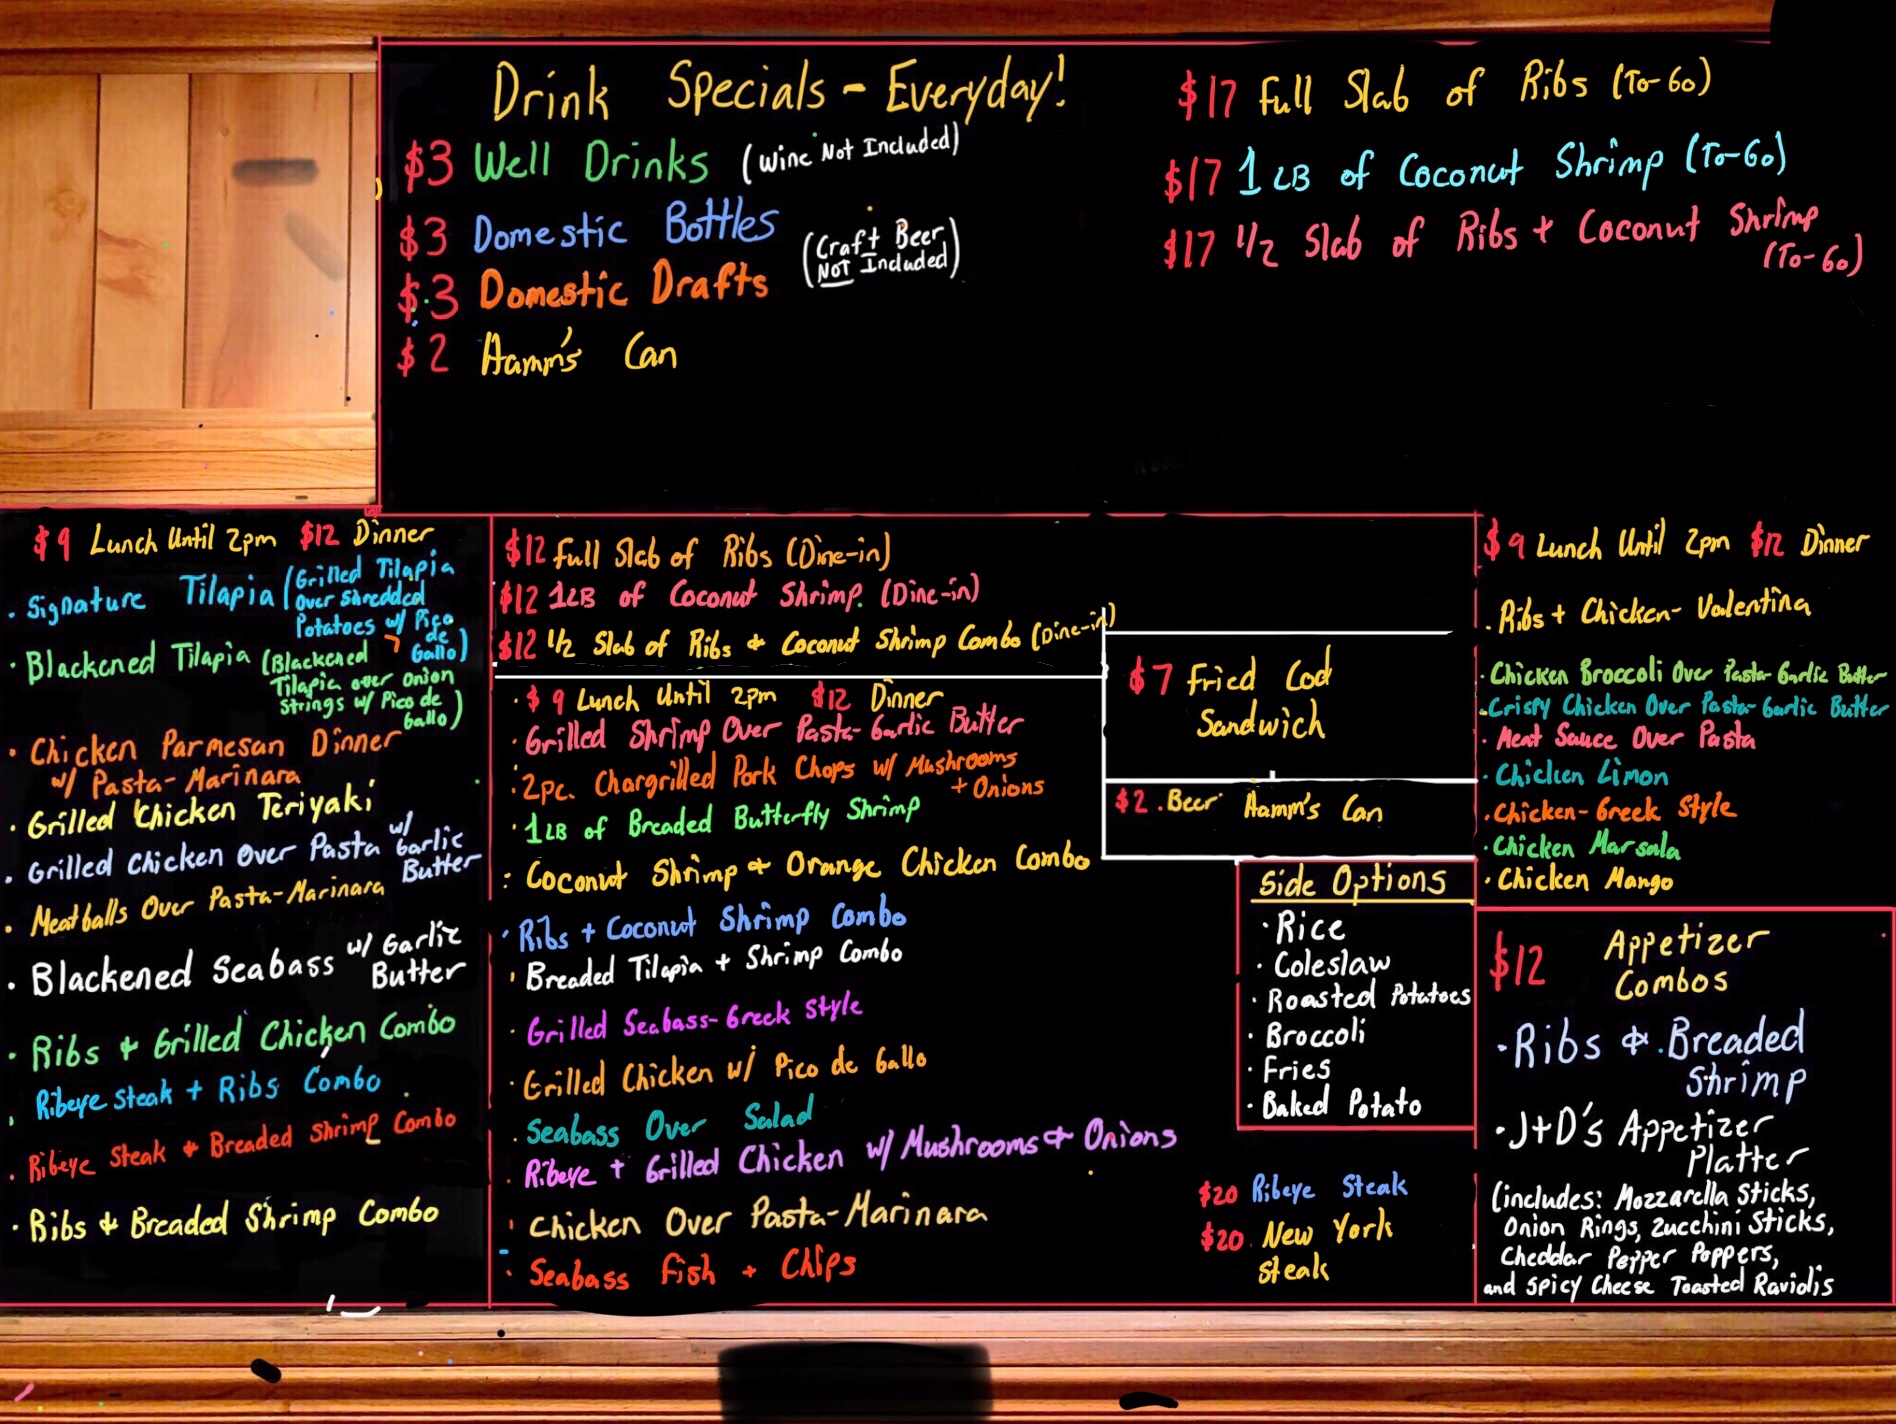 Drink Specials - Everyday!
$3 Well Drinks (Wine Not Included)
$3 Domestic Bottles
(Craft Beer
NOT Included)
$3 Domestic Drafts
$2 Hamm's Can
$17 Full Slab of Ribs (To-Go)
$17 1 LB of Coconut Shrimp (To-Go)
$17 1/2 Slab of Ribs + Coconut Shrimp
(To-Go)
$9 Lunch Until 2pm $12 Dinner
· Signature Tilapia (Grilled Tilapia
over shredded
Potatoes w/ Pico
de
Gallo)
· Blackened Tilapia (Blackened
Tilapia over onion
Strings w/ Pico de
Gallo)
· Chicken Parmesan Dinner
w/ Pasta-Marinara
· Grilled Chicken Teriyaki
· Grilled Chicken Over Pasta w/
Garlic
Butter
· Meatballs Over Pasta-Marinara
· Blackened Seabass w/ Garlic
Butter
· Ribs & Grilled Chicken Combo
· Ribeye Steak + Ribs Combo
· Ribeye Steak & Breaded Shrimp Combo
· Ribs & Breaded Shrimp Combo
$12 Full Slab of Ribs (Dine-in)
$12 1LB of Coconut Shrimp. (Dine-in)
$12 1/2 Slab of Ribs & Coconut Shrimp Combo (Dine-in)
· $9 Lunch Until 2pm $12 Dinner
· Grilled Shrimp Over Pasta-Garlic Butter
· 2pc. Chargrilled Pork Chops w/ Mushrooms
+ Onions
· 1LB of Breaded Butterfly Shrimp
· Coconut Shrimp & Orange Chicken Combo
· Ribs + Coconut Shrimp Combo
· Breaded Tilapia + Shrimp Combo
· Grilled Seabass-Greek Style
· Grilled Chicken w/ Pico de Gallo
· Seabass Over Salad
· Ribeye + Grilled Chicken w/ Mushrooms & Onions
· Chicken Over Pasta-Marinara
· Seabass Fish + Chips
$7 Fried Cod
Sandwich
$2. Beer Hamm's Can
Side Options
· Rice
· Coleslaw
· Roasted Potatoes
· Broccoli
· Fries
· Baked Potato
$20 Ribeye Steak
$20 New York
Steak
$9 Lunch Until 2pm $12 Dinner
· Ribs + Chicken- Valentina
· Chicken Broccoli Over Pasta-Garlic Butter
· Crispy Chicken Over Pasta-Garlic Butter
· Meat Sauce Over Pasta
· Chicken Limon
· Chicken-Greek Style
· Chicken Marsala
· Chicken Mango
$12 Appetizer
Combos
· Ribs & Breaded
Shrimp
· J+D's Appetizer
Platter
(includes: Mozzarella Sticks,
Onion Rings, Zucchini Sticks,
Cheddar Pepper Poppers,
and Spicy Cheese Toasted Raviolis